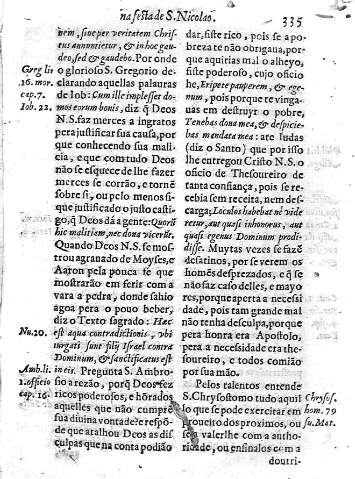 na festa de S. Nicolao. 335
nem, siue per veritatem Chris-
tus annuntietur, & in hoc gau-
deo, sed & gaudebo. Por onde
o glorioso S. Gregorio de-
clarando aquellas palauras
de Iob: Cum ille implesset do-
mos eorum bonis, diz q̃ Deos
N.S. faz merces a ingratos
pera justificar sua causa, por
que conhecendo sua mali-
cia, e que com tudo Deos
não se esquece de lhe fazer
merces se corrão, e torné
sobre si, ou pelo menos si-
que justificado o justo casti-
go, q̃ Deos dà a gente: Quorũ
hic malitiem, nec dona vicerũt.
Quando Deos N.S. se mos-
trou agrauado de Moyses, e
Aaron pela pouca fe que
mostrarão em ferir com a
vara a pedra, donde sahio
agoa pera o pouo beber,
diz o Texto sagrado: Hæc
est aqua contradictionis, vbi
iurgati sunt filij Israel contra
Dominum, & sanctificatus est
in eis. Pregunta S. Ambro-
sio a rezão, porq̃ Deos fez
ricos poderosos, e hõrados
aquelles que não cumprẽ
sua diuina vontade? e respõ-
de que atalhou Deos as dis-
culpas que na conta podião
Greg. li
16. mor.
cap. 7.
Iob. 22.
Nu. 20.
Amb. li.
1. officio
cap. 16.
dar, siste rico, pois se a po-
breza te não obrigaua, por-
que aquirias mal o alheyo,
siste poderoso, cujo oficio
he, Eripere pauperem, & ege-
num, pois porque te vinga-
uas em destruyr o pobre,
Tenebas dona mea, & despicie-
bas mandata mea: are Iudas
(diz o Santo) que por isso
lhe entregou Cristo N.S. o
oficio de Thesoureiro de
tanta confiança, pois se re-
cebia sem receita, nem des-
carga; Loculos habebat nè vide
retur, aut quasi inhonorus, aut
quasi egenus Dominum prodi-
disse. Muytas vezes se fazẽ
desatinos, por se verem os
homẽs desprezados, e q̃ se
não faz caso delles, e mayo
res, porque aperta a necessi
dade, pois tam grande mal
não tenha desculpa, porque
pera honra era Apostolo,
pera a necessidade era the-
soureiro, e todos comião
por sua mão.
Pelos talentos entende
S. Chrysostomo tudo aquil
lo que se pode exercitar em
proueito dos proximos, ou
seja valerlhe com a autho-
ridade, ou ensinalos com a
doutri-
Chrysos.
hom. 79
su. Mat.